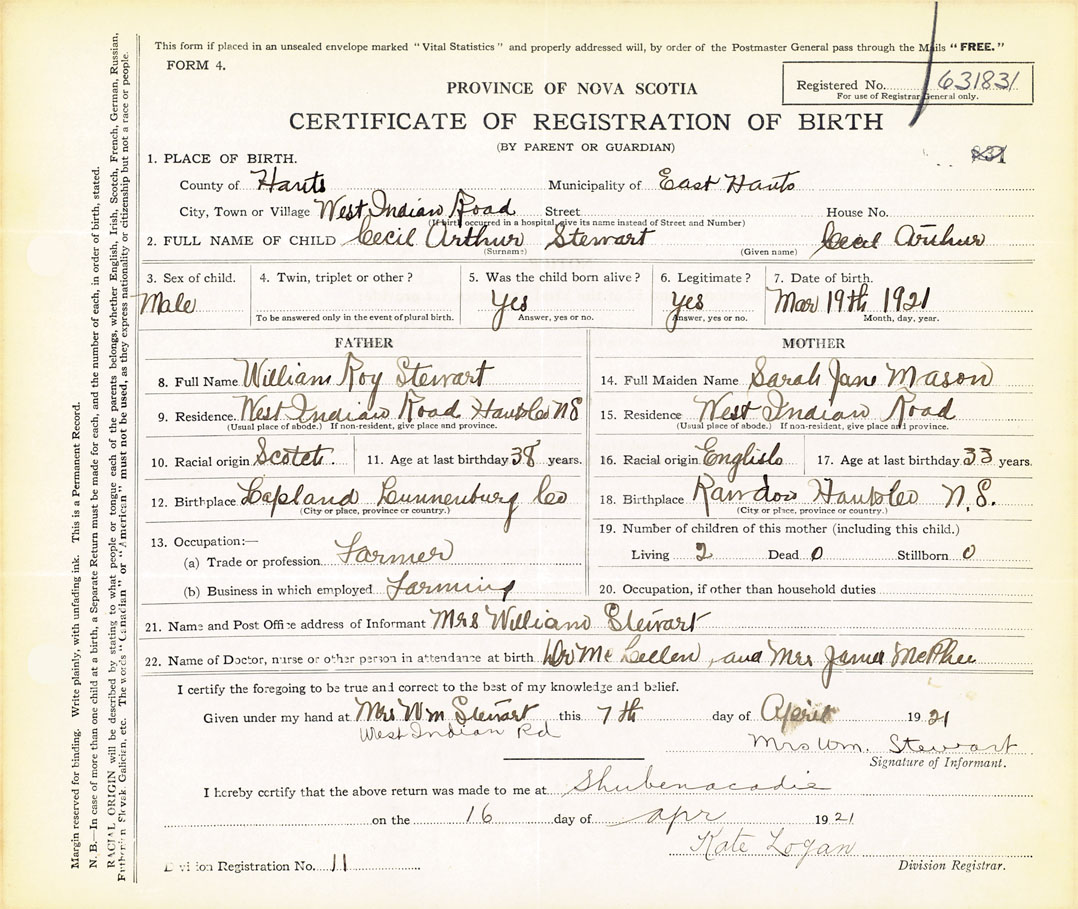 This form if placed in an unsealed envelope marked "Vital Statistics" and properly addressed will, by order of the Postmaster General pass through the Mails "FREE."
FORM 4.
Registered No. 631831
For use of Registrar General only.
PROVINCE OF NOVA SCOTIA
CERTIFICATE OF REGISTRATION OF BIRTH
(BY PARENT OR GUARDIAN)
831
1. PLACE OF BIRTH.
County of Hants Municipality of East Hants
City, Town or Village West Indian Road Street House No.
(If birth occurred in a hospital, give its name instead of Street and Number)
2. FULL NAME OF CHILD Cecil Arthur Stewart Cecil Arthur
(Surname) (Given name)
3. Sex of child. 4. Twin, triplet or other? 5. Was the child born alive? 6. Legitimate? 7. Date of birth.
Male Yes Yes Mar 19th 1921
To be answered only in the event of plural birth. Answer, yes or no. Answer, yes or no. Month, day, year.
FATHER
8. Full Name William Roy Stewart
9. Residence. West Indian Road Hants Co N S
(Usual place of abode.) If non-resident, give place and province.
10. Racial origin Scotch 11. Age at last birthday 38 years.
12. Birthplace Lapland Lunnenburg Co
(City or place, province or country.)
13. Occupation:—
(a) Trade or profession Farmer
(b) Business in which employed Farming
MOTHER
14. Full Maiden Name Sarah Jane Mason
15. Residence West Indian Road
(Usual place of abode.) If non-resident, give place and province.
16. Racial origin English 17. Age at last birthday 33 years.
18. Birthplace Rawdon Hants Co N.S.
(City or place, province or country.)
19. Number of children of this mother (including this child.)
Living 2 Dead 0 Stillborn 0
20. Occupation, if other than household duties
21. Name and Post Office address of Informant Mrs William Stewart
22. Name of Doctor, nurse or other person in attendance at birth Dr McLellen, and Mrs James McPhee
I certify the foregoing to be true and correct to the best of my knowledge and belief.
Given under my hand at Mrs Wm Stewart this 7th day of April 1921
West Indian Rd
Mrs Wm. Stewart
Signature of Informant.
I hereby certify that the above return was made to me at Shubenacadie
on the 16 day of apr 1921
Kate Logan
Division Registrar.
Division Registration No. 11
Margin reserved for binding. Write plainly, with unfading ink. This is a Permanent Record.
N. B.—In case of more than one child at a birth, a Separate Return must be made for each, and the number of each, in order of birth, stated.
RACIAL ORIGIN will be described by stating to what people or tongue each of the parents belongs, whether English, Irish, Scotch, French, German, Russian,
Slovak, Galician, etc. The words "Canadian" or "American" must not be used, as they express nationality or citizenship but not a race or people.